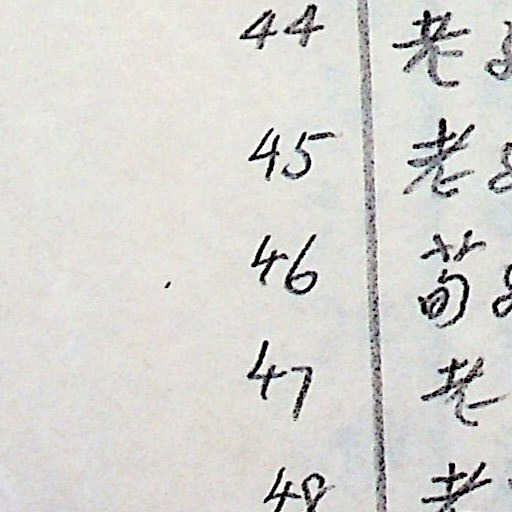 44 老
45 老
46 荀
47 老
48 老